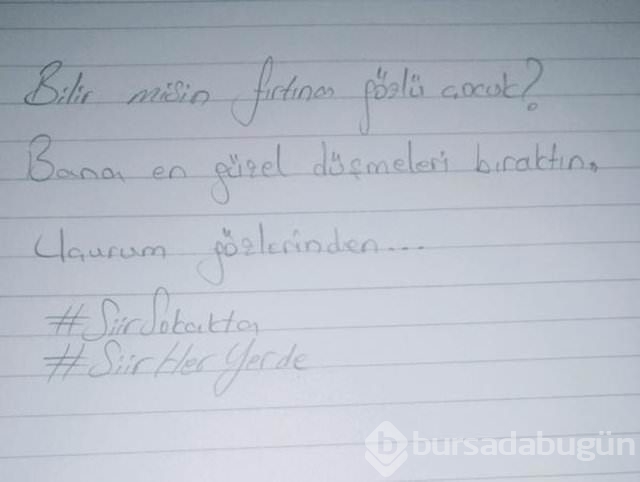 Bilir misin fırtına gözlü çocuk?
Bana en güzel düşmeleri bıraktın,
Uçurum gözlerinden...
#ŞiirSokakta
#ŞiirHerYerde
bursadabugün